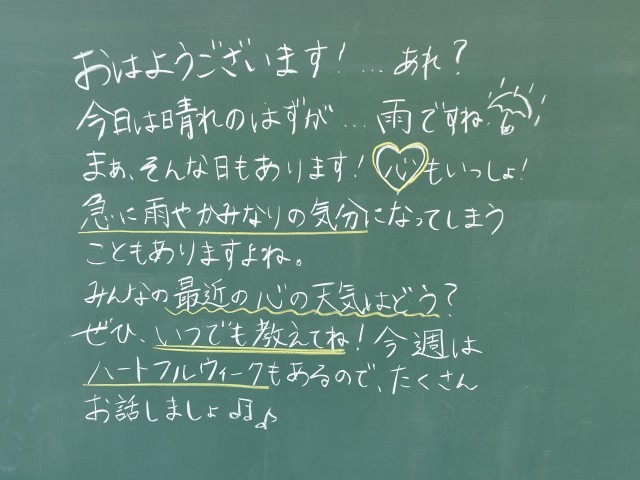 おはようございます！…あれ？
今日は晴れのはずが…雨ですね
まぁ、そんな日もあります！心もいっしょ！
急に雨やかみなりの気分になってしまう
こともありますよね。
みんなの最近の心の天気はどう？
ぜひ、いつでも教えてね！今週は
ハートフルウィークもあるので、たくさん
お話しましょ♫♪